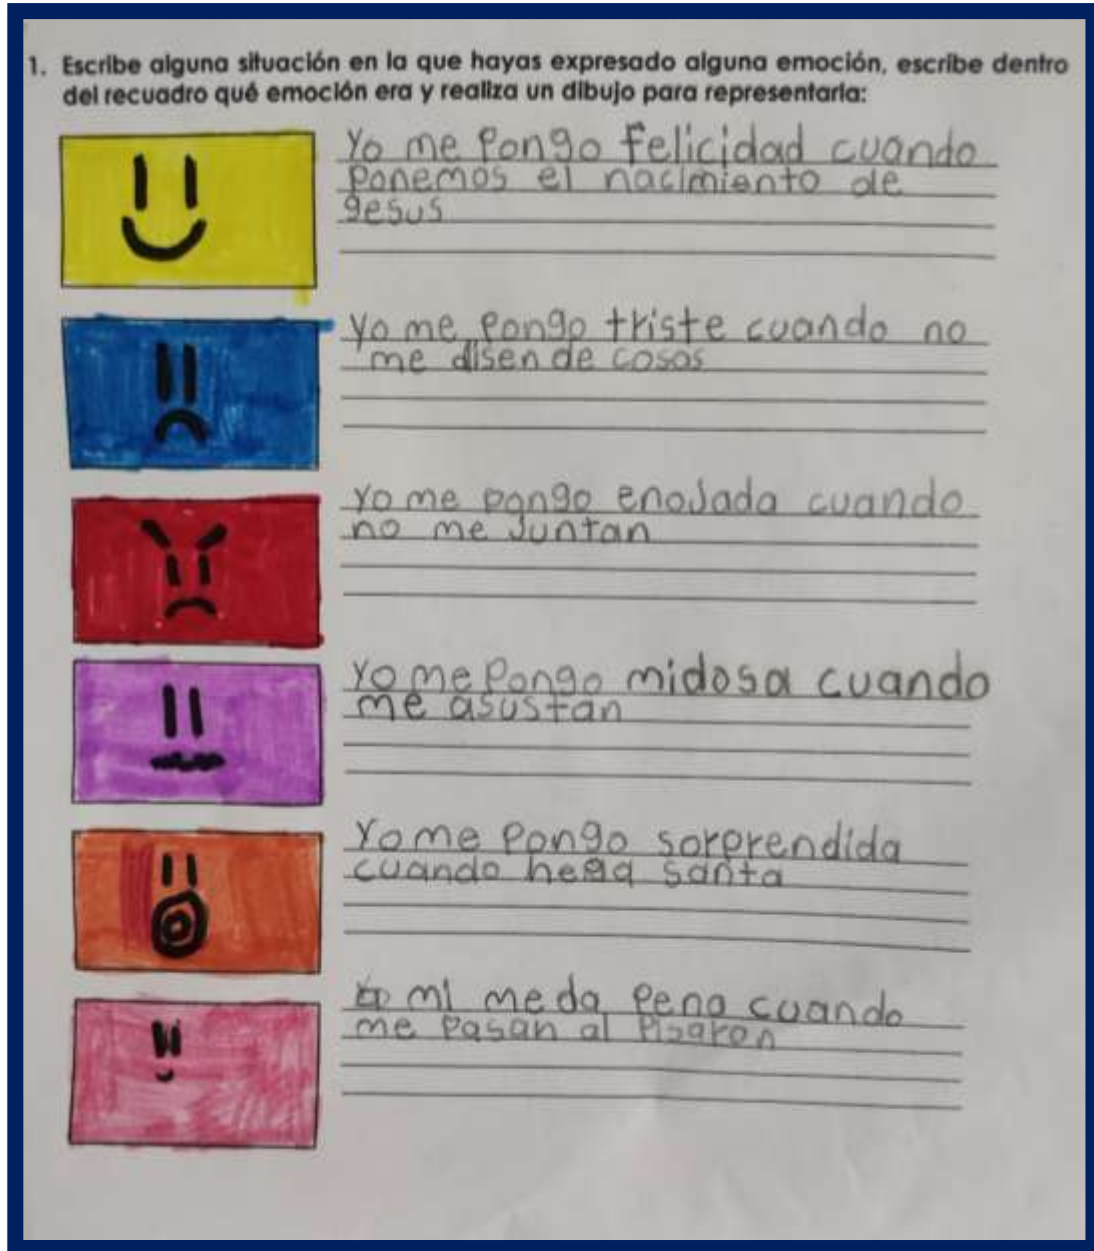 1. Escribe alguna situación en la que hayas expresado alguna emoción, escribe dentro
del recuadro qué emoción era y realiza un dibujo para representarla:
Yo me Pongo felicidad cuando
Ponemos el nacimiento de
gesus
Yo me Pongo triste cuando no
me disen de cosas
Yo me pongo enojada cuando
no me juntan
Yo me Pongo midosa cuando
me asustan
Yo me Pongo sorprendida
cuando llega santa
mi me da Pena cuando
me Pasan al Pisaron